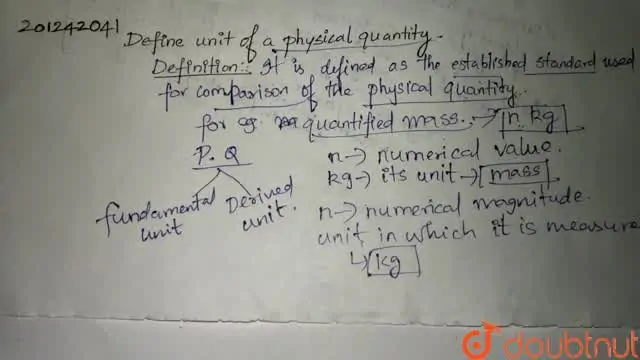 201242041
Define unit of a physical quantity.
Definition:- It is defined as the established standard used
for comparison of the physical quantity.
for eg. quantified mass. → n kg
P. Q
n → numerical value.
kg → its unit → mass
Fundamental unit
Derived unit.
n → numerical magnitude.
unit in which it is measure
↳ kg
doubtnut